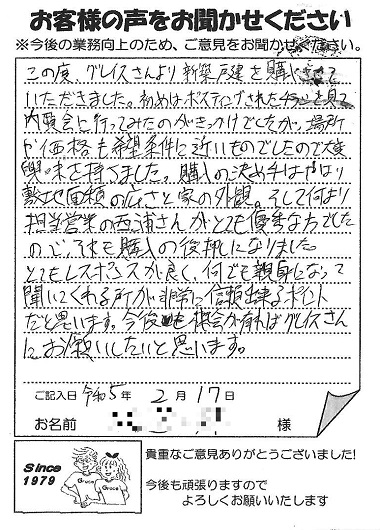 お客様の声をお聞かせください
※今後の業務向上のため、ご意見をお聞かせください。
この度、グレイスさんより新築戸建を購入させて
いただきました。初めはポスティングされたチラシを見て
内覧会に行ってみたのがきっかけでしたが、場所
や価格も希望条件に近いものでしたので大変
興味を持ちました。購入の決め手はやはり
敷地面積の広さと家の外観。そして何より
担当営業の西浦さんがとても優秀な方でした
ので、それも購入の後押しになりました。
とてもレスポンスが良く、何でも親身になって
聞いてくれる所が非常に信頼出来るポイント
だと思います。今後も機会が有ればグレイスさん
にお願いしたいと思います。
ご記入日 令和5年 2月 17日
お名前 様
Since
1979
Grace Grace
貴重なご意見ありがとうございました!
今後も頑張りますので
よろしくお願いいたします